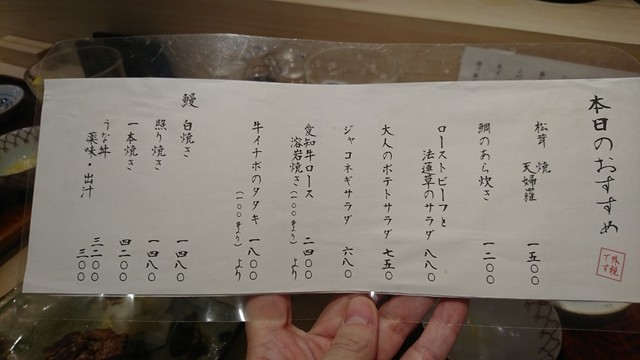 本日のおすすめ
外税です
松茸 焼 天婦羅 一五〇〇
鯛のあら炊き 一二〇〇
ローストビーフと
法蓮草のサラダ 八八〇
大人のポテトサラダ 七五〇
ジャコネギサラダ 六八〇
愛知牛ロース
溶岩焼き(一〇〇gより) 二四〇〇より
牛イチボのタタキ 一八〇〇
(一〇〇gより) より
鰻 白焼き 一四八〇
照り焼き 一四八〇
一本焼き 四二〇〇
うな丼 三二〇〇
薬味・出汁 三〇〇